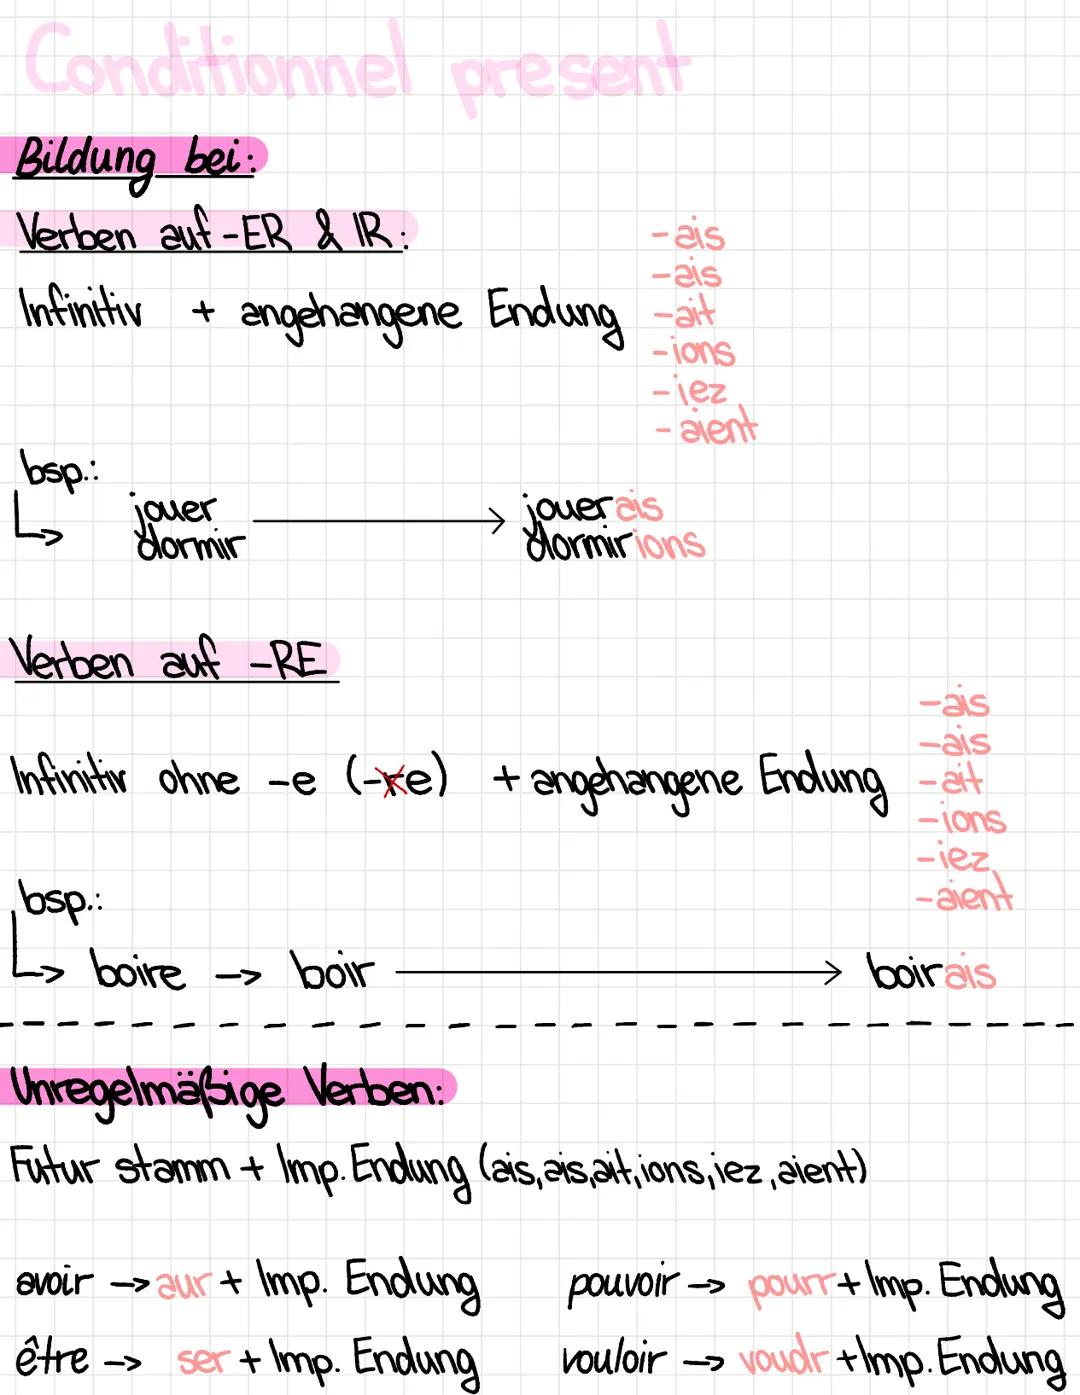 Conditionnel present
Bildung bei:
Verben auf -ER & IR:
-ais
-ais
Infinitiv + angehangene Endung -ait
-ions
-iez
-aient
bsp.:
jouer → jouerais
dormir dormirions
Verben auf -RE
-ais
-ais
Infinitiv ohne -e (-re) + angehangene Endung -ait
-ions
-iez
-aient
bsp.:
↳ boire → boir → boirais
Unregelmäßige Verben:
Futur stamm + Imp. Endung (ais, ais, ait, ions, iez, aient)
avoir → aur + Imp. Endung pouvoir → pourr + Imp. Endung
être → ser + Imp. Endung vouloir → voudr + Imp. Endung